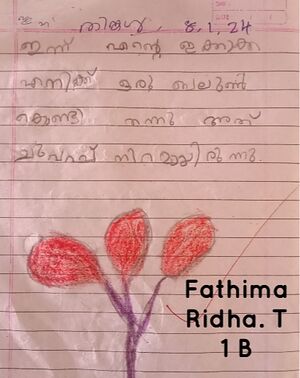 തിങ്കൾ, 8.1.24
ഇന്ന് എന്റെ ഇക്കാക്ക
എനിക്ക് ഒരു ബലൂൺ
കൊണ്ടു തന്നു അത്
ചുവപ്പ് നിറമായിരുന്നു.
Fathima
Ridha. T
1 B